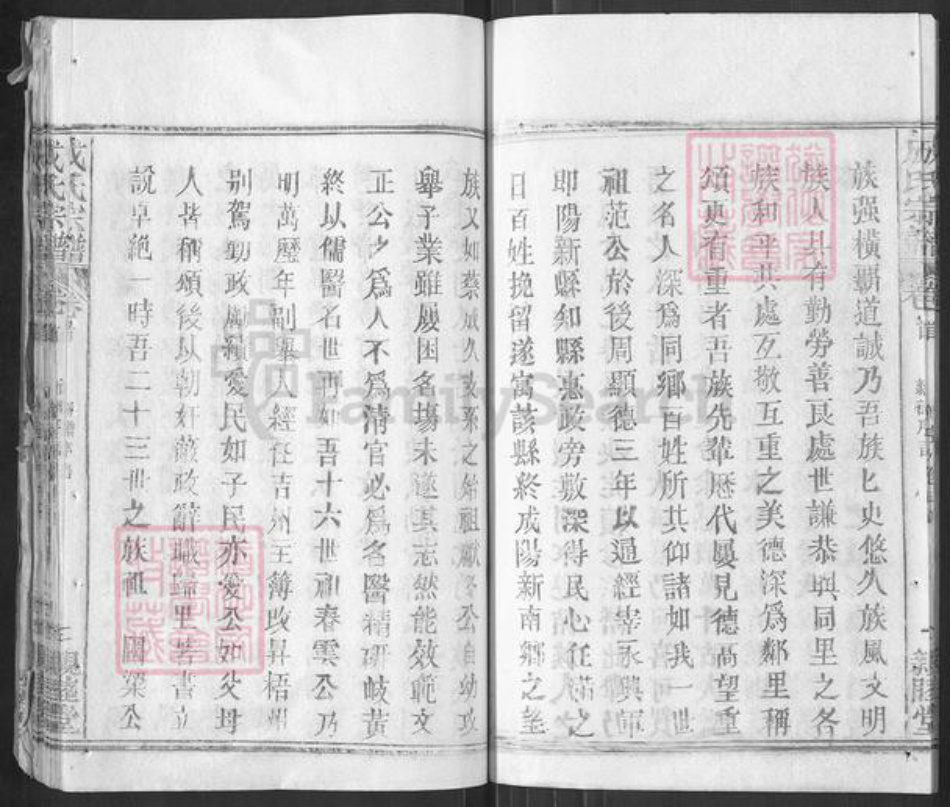 族强橫霸道誠乃吾族匕史悠久族風文明
族人具有勤勞善良處世謙恭與同里之各
族和平共處互敬互重之美德深爲鄰里稱
頌更有重者吾族先輩歷代屡見德高望重
之名人深爲同鄉百姓所共仰諸如我一世
祖范公於後周顯德三年以通經宰永興軍
即陽新縣知縣惠政旁敷深得民心任滿之
日百姓挽留遂寓該縣終成陽新南鄉之望
族又如蔡 久 系之始祖 公自幼攻
舉子業雖屡困名塲未遂其志然能效範文
正公之爲人不爲清官必爲名醫精研岐黃
終以儒醫名世再如吾十六世祖春雲公乃
明萬歷年副舉人經任吉州主簿政昇梧州
別駕勤政 績愛民如子民亦愛公如父母
人皆稱頌後以朝奸 政辭職歸里著書立
說卓絕一時吾二十三世之族祖 國深公
成氏宗譜
親睦堂
FamilySearch